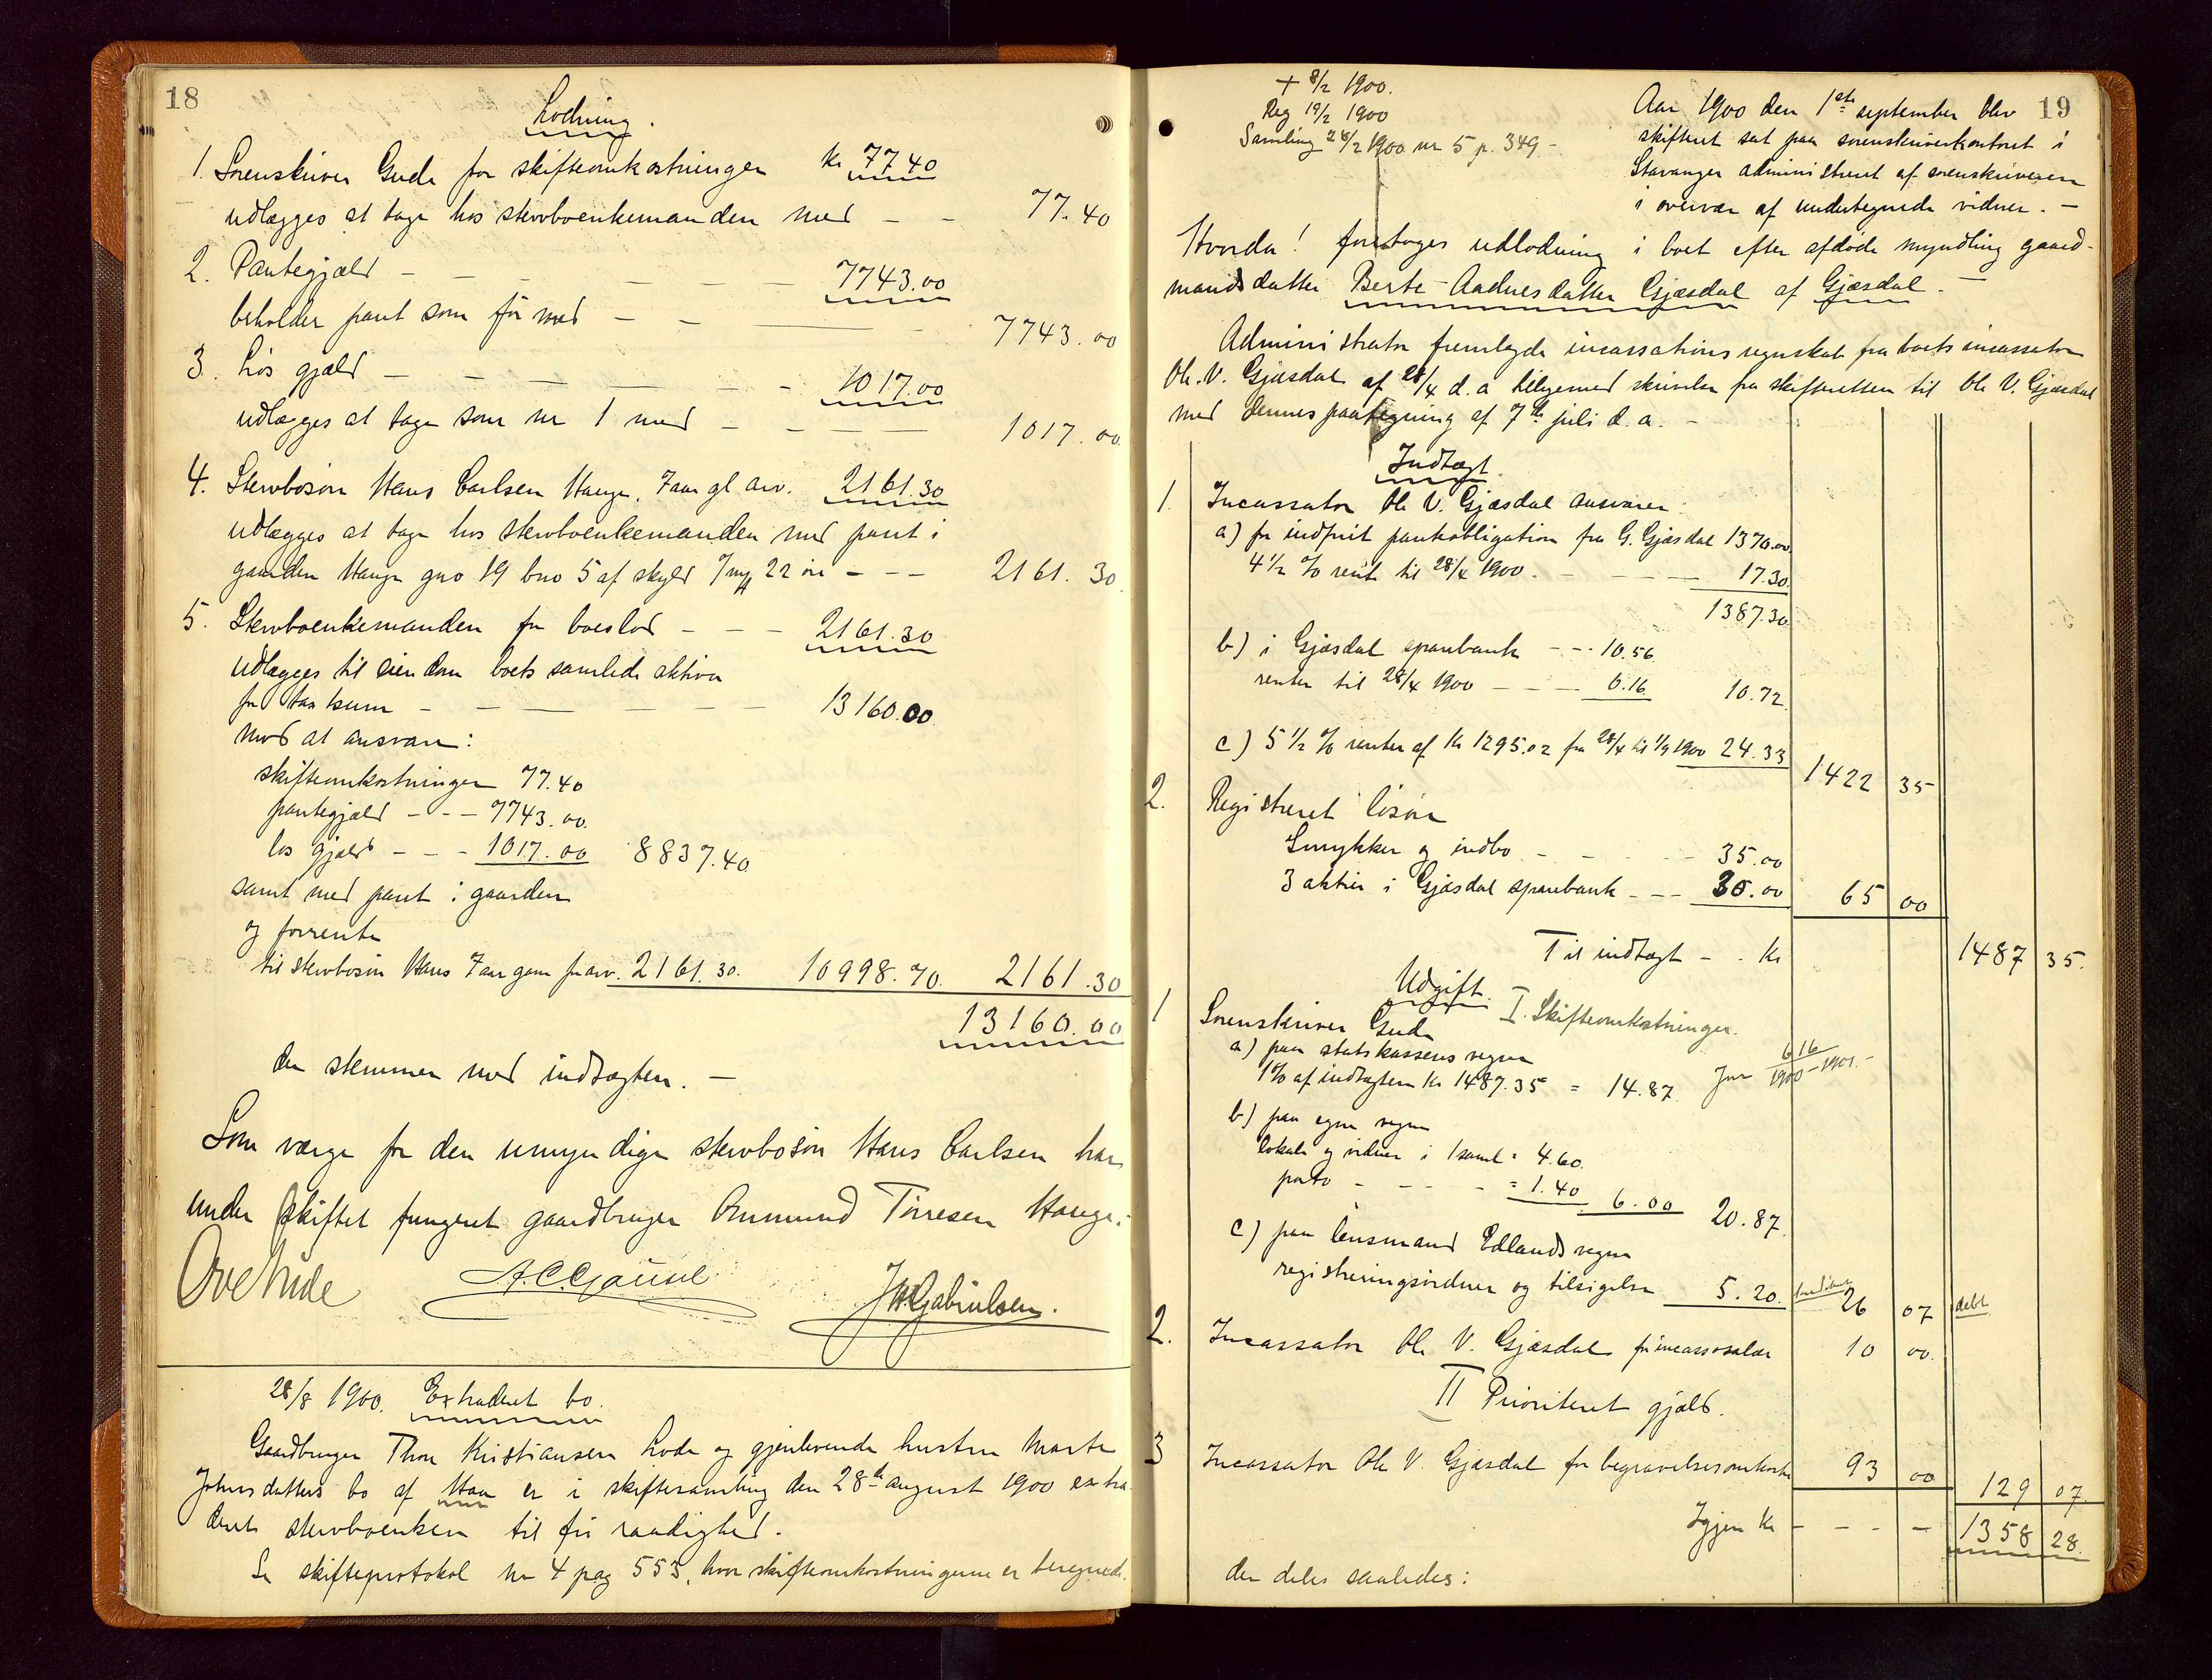 18
Lodning.
1. Sorenskriver Gude for skifteomkostninger kr 77.40
udlægges at tage hos stervboenkemanden med - - 77.40
2. Pantegjæld - - - - - 7743.00
beholder pant som för med - - 7743.00
3. Lös gjæld - - - - - 1017.00
udlægges at tage som nr 1 med - - 1017.00
4. Stervbosön Hans Carlsen Hauge, 7 aar gl arv. 2161.30
udlægges at tage hos stervboenkemanden med pant i
gaarden Hauge gno 19 bno 5 af skyld 7 mk 22 öre - - - 2161.30
5. Stervboenkemanden for boeslod - - - 2161.30
udlægges til eiendom boets samlede aktiva
for taxtsum - - - - - 13160.00
mod at ansvare:
skifteomkostninger 77.40
pantegjæld - - - 7743.00.
løs gjæld - - - 1017.00 8837.40
samt med pant i gaarden
og forrente
til stervbosön Hans 7 aar gam for arv. 2161.30. 10998.70. 2161.30
13160.00
der stemmer med indtægten. -
Som værge for den umyndige stervbosön Hans Carlsen har
under skiftet fungeret gaardbruger Ommund Törresen Hauge.
Ove Gude A.C. Gausel J H Gabrielsen.
28/8 1900. Extraderet bo.
Gaardbruger Thore Kristiansen Lode og gjenlevende hustru Marta
Johnsdatters bo af Haa er i skiftesamling den 28de august 1900 extra-
deret stervboenken til fri raadighed.
Se skifteprotokol nr 4 pag 553, hvor skifteomkostningerne er beregnede.
19
+ 8/2 1900.
Reg 19/2 1900
Samling 28/2 1900 nr 5 p. 349 -
Aar 1900 den 1ste september blev
skifteret sat paa sorenskriverkontoret i
Stavanger administreret af sorenskriveren
i overvær af undertegnede vidner. -
Hvorda! foretoges udlodning i boet efter afdöde myndling gaard-
mandsdatter Berte Aadnesdatter Gjæsdal af Gjæsdal. -
Administrator fremlagde incassationsregnskab fra boets incassator
Ole V. Gjæsdal af 28/4 d.a tilligemed skrivelse fra skifteretten til Ole V. Gjæsdal
med dennes paategning af 7de juli d.a. -
Indtægt.
1. Incassator Ole V. Gjæsdal ansvarer:
a) for indfriet panteobligation fra G. Gjæsdal 1370.00
4 1/2 % rente til 28/4 1900. - - - 17.30.
1387.30.
b) i Gjæsdal sparebank - - - 10.56
renter til 28/4 1900 - - - 0.16 10.72
c) 5 1/2 % renter af Kr 1295.02 fra 28/4 til 1/9 1900 24.33 1422 35
2. Registreret lösöre
Smykker og indbo - - - - 35.00
3 aktier i Gjæsdal sparebank - - - 30.00 65 00
Til indtægt - - Kr 1487 35.
Udgift.
I. Skifteomkostninger.
1 Sorenskriver Gude
a) paa statskassens vegne
1% af indtægten Kr 1487.35 = 14.87 Jnr 616/1900-1901.-
b) paa egne vegne
lokale og vidner i 1 saml = 4.60.
porto - - - - = 1.40 6.00 20.87
c) paa lensmand Edlands vegne
registreringsvidner og tilsigelse 5.20. 26 07 debt
2. Incassator Ole V. Gjæsdal for incassosalær 10 00.
II Prioriteret gjæld.
3 Incassator Ole V. Gjæsdal for begravelsesomkostn 93 00 129 07.
Igjen Kr - - - - 1358 28.
der deles saaledes: